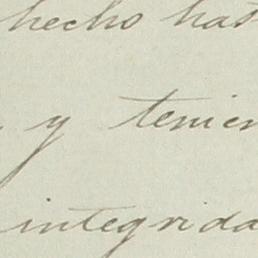 hecho has
y tenien
integrida